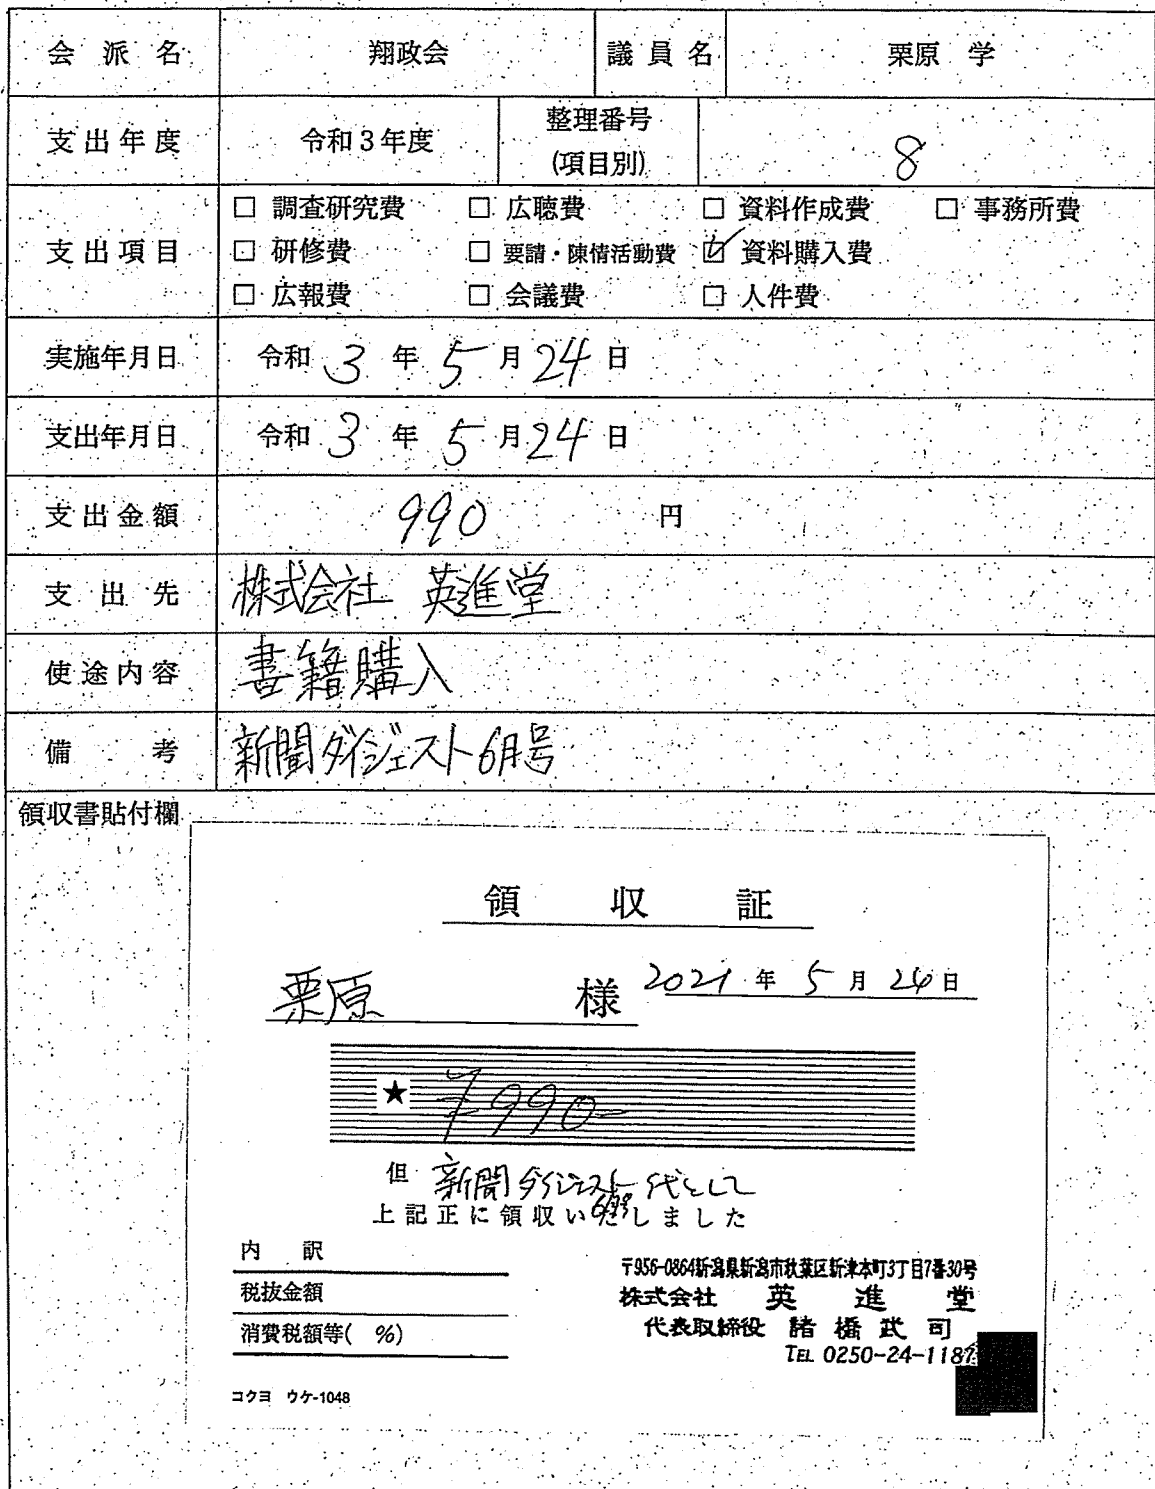 会派名 翔政会 議員名 栗原 学
支出年度 令和3年度 整理番号 (項目別) 8
支出項目
□ 調査研究費 □ 広聴費 □ 資料作成費 □ 事務所費
□ 研修費 □ 要請・陳情活動費 ☑ 資料購入費
□ 広報費 □ 会議費 □ 人件費
実施年月日 令和 3 年 5 月 24 日
支出年月日 令和 3 年 5 月 24 日
支出金額 990 円
支出先 株式会社 英進堂
使途内容 書籍購入
備考 新聞ダイジェスト6月号
領収書貼付欄
領収証
栗原 様 2021 年 5 月 24 日
★ ¥990-
但 新聞ダイジェスト代として
6月号
上記正に領収いたしました
内訳
税抜金額
消費税額等( %)
コクヨ ウケ-1048
〒956-0864新潟県新潟市秋葉区新津本町3丁目7番30号
株式会社 英進堂
代表取締役 諸橋武司
TEL 0250-24-1187